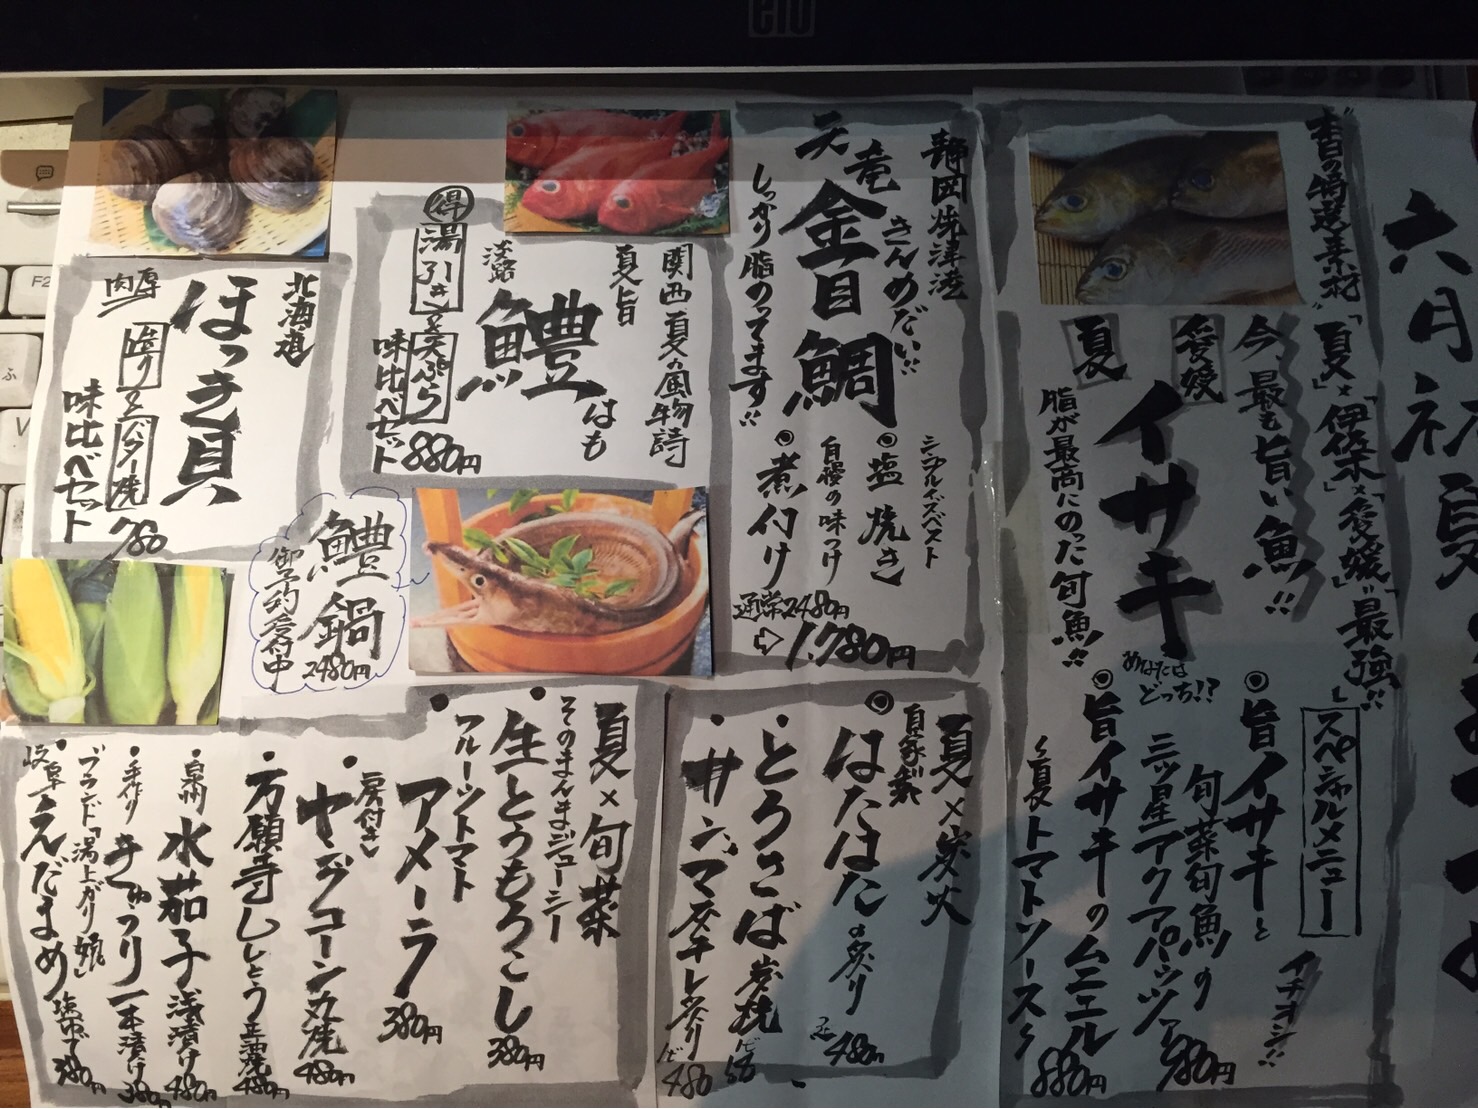 六月初夏
本日の特選素材
「夏」×「伊保木」×「愛媛」"最強"!!
今、最も旨い魚!!
愛媛
イサキ
夏
脂が最高にのった旬魚!!
あなたはどっち!?
スペシャルメニュー
イチオシ!!
◎旨イサキと
旬菜旬魚の
三ッ星アクアパッツァ
980円
◎旨イサキのムニエル
〜夏トマトソース〜
880円
静岡焼津港
天竜
きんめだい!!
金目鯛
しっかり脂のってます!!
シンプルイズベスト
◎塩焼き
自慢の味つけ
◎煮付け
通常2480円
⇨1.780円
関西夏の風物詩
夏旨
はも
鱧
淡路
得
湯引きと天ぷら
味比べセット
880円
北海道
ほっき貝
肉厚
造りとバター焼
味比べセット
780
鱧鍋
2480円
御予約受付中
夏×炭火
自家製
◎はたはたの炙り
480円
・とろさば炭焼
・サンマ灰干し炙り
480
夏×旬菜
そのまんまジューシー
・生とうもろこし
380円
フルーツトマト
・アメーラ
380円
房付き
・ヤングコーン丸焼
480円
・万願寺ししとう
480円
・泉州水茄子浅漬け
480円
・手作りきゅうり一本漬け
380円
ブランド「湯上がり娘」
・岐阜えだまめ塩ゆで
380円